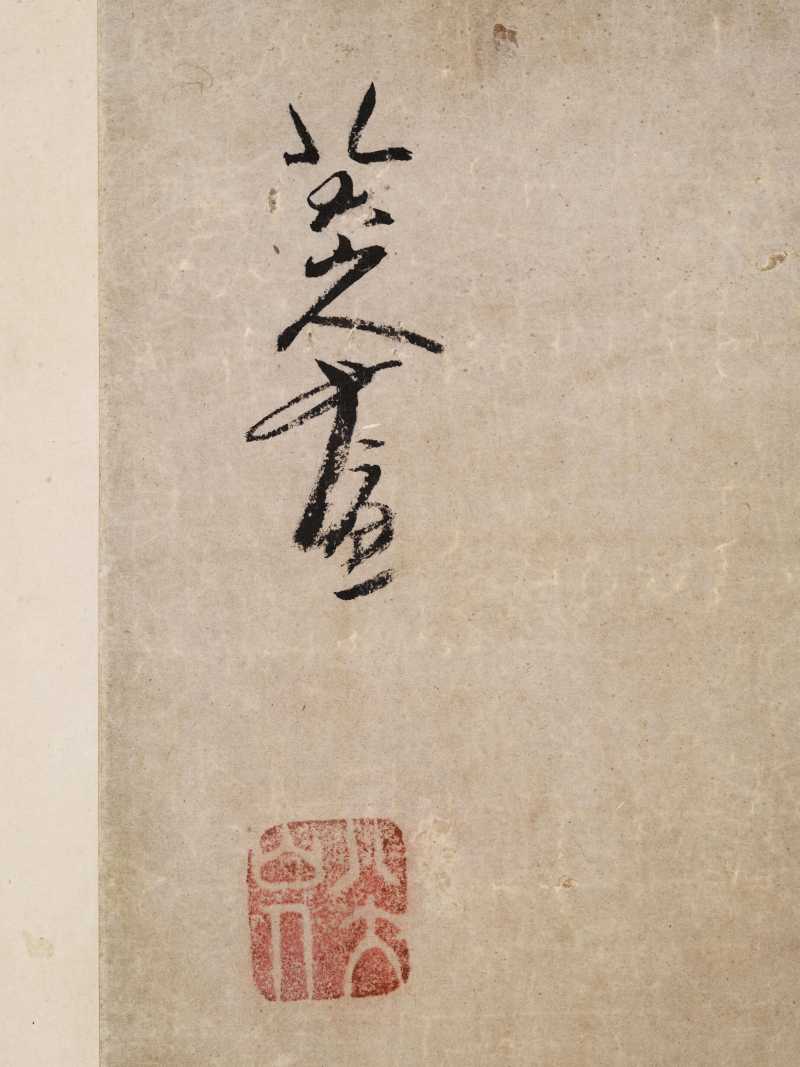 八大山人
八大山人